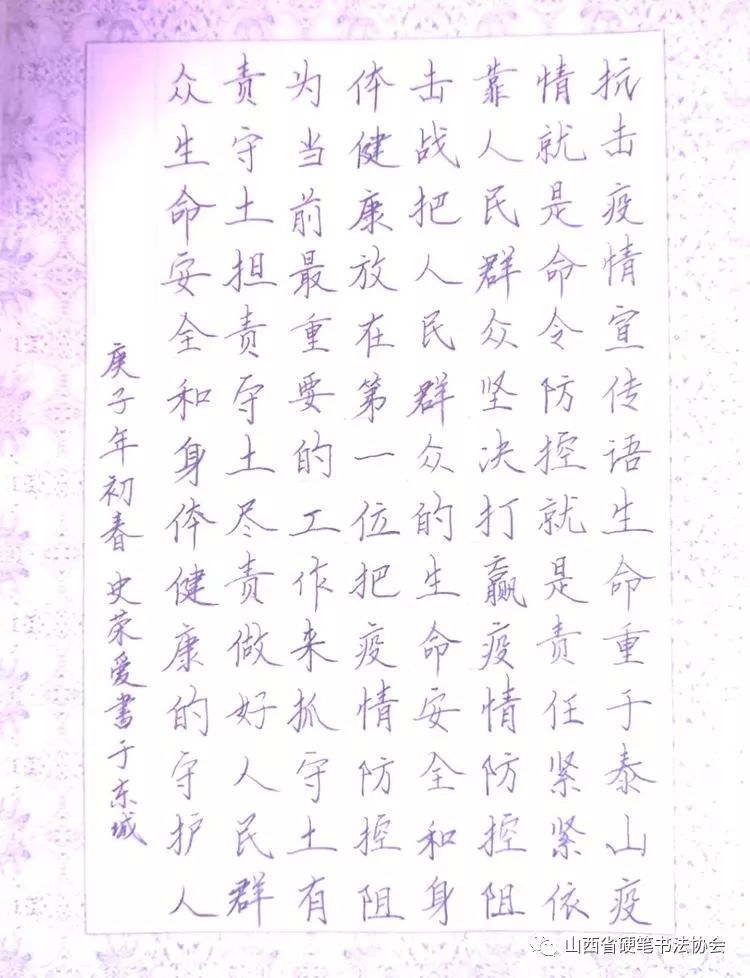 抗击疫情宣传语生命重于泰山疫
情就是命令防控就是责任紧紧依
靠人民群众坚决打赢疫情防控阻
击战把人民群众的生命安全和身
体健康放在第一位把疫情防控阻
为当前最重要的工作来抓守土有
责守土担责守土尽责做好人民群
众生命安全和身体健康的守护人
庚子年初春史荣爱書于东城
山西省硬笔书法协会